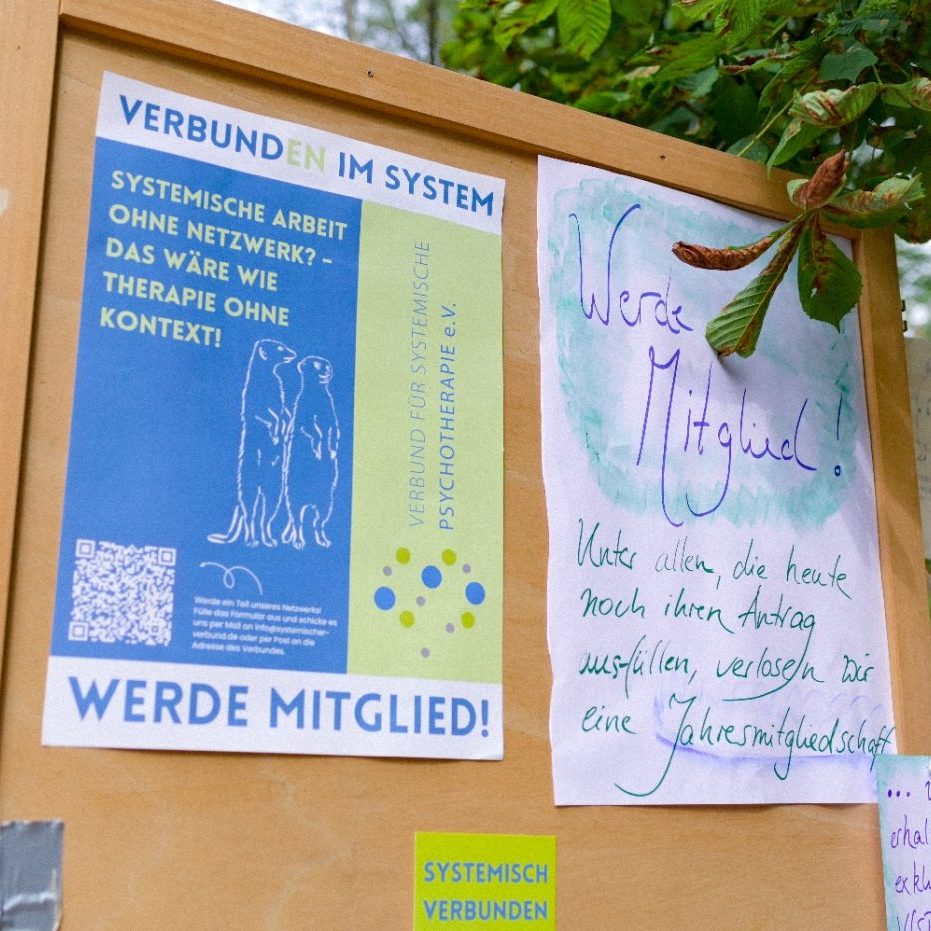 VERBUNDEN IM SYSTEM
SYSTEMISCHE ARBEIT
OHNE NETZWERK? -
DAS WÄRE WIE
THERAPIE OHNE
KONTEXT!
VERBUND FÜR SYSTEMISCHE
PSYCHOTHERAPIE e.V.
Werde ein Teil unseres Netzwerks!
Fülle das Formular aus und schicke es
uns per Mail an info@systemischer-
verbund.de oder per Post an die
Adresse des Verbundes.
WERDE MITGLIED!
Werde
Mitglied!
Unter allen, die heute
noch ihren Antrag
ausfüllen, verlosen wir
eine Jahresmitgliedschaft
SYSTEMISCH
VERBUNDEN
...